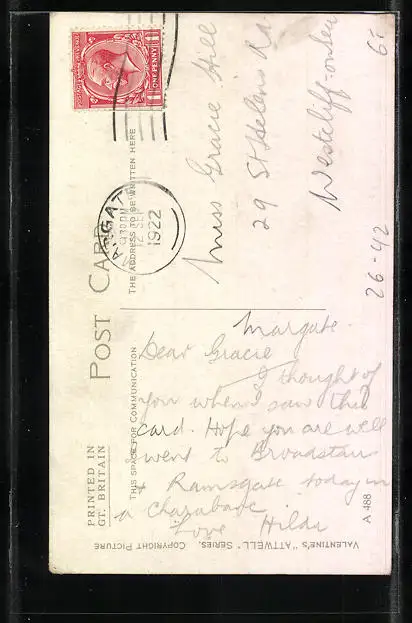 POST CARD
PRINTED IN
GT. BRITAIN
THIS SPACE FOR COMMUNICATION
THE ADDRESS TO BE WRITTEN HERE
POSTAGE REVENUE
ONE PENNY
MARGATE
9 30 PM
12 SEP
1922
Miss Gracie Hill
29 St Helens Rd
Westcliff-on-Sea
26-42
Margate.
Dear Gracie
I thought of
you when I saw this
card. Hope you are well
went to Broadstairs
& Ramsgate today in
a charabanc
Love Hilda
VALENTINE'S "ATTWELL" SERIES. COPYRIGHT PICTURE
A 488